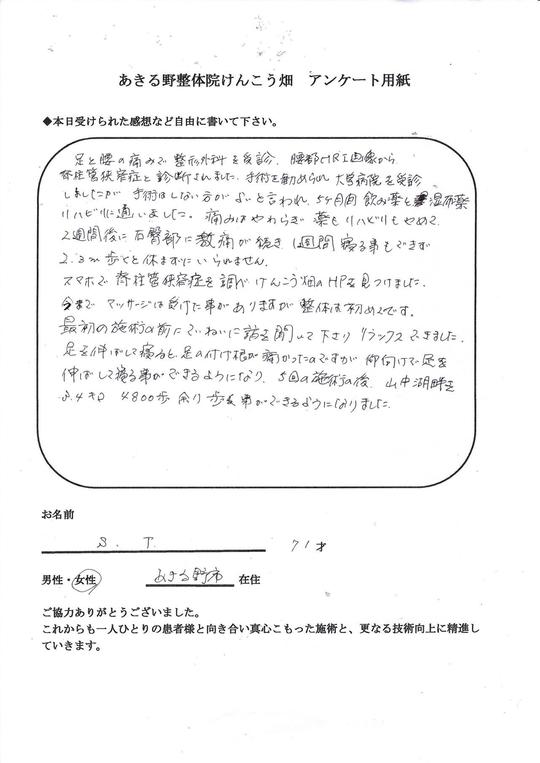 あきる野整体院けんこう畑　アンケート用紙
◆本日受けられた感想など自由に書いて下さい。
足と腰の痛みで整形外科を受診、腰部MRI画像から
脊柱管狭窄症と診断されました。手術を勧められ大学病院を受診
しましたが手術はしない方がよいと言われ、5ヶ月間飲み薬と湿布薬
リハビリに通いました。痛みはやわらぎ薬もリハビリもやめて、
2週間後に右臀部に激痛が続き1週間寝る事もできず
2.3m歩くと休まずにいられません。
スマホで脊柱管狭窄症を調べけんこう畑のHPを見つけました。
今までマッサージは受けた事がありますが整体は初めてです。
最初の施術の前にていねいに話を聞いて下さりリラックスできました。
足を伸ばして寝ると足の付け根が痛かったのですが仰向けで足を
伸ばして寝る事ができるようになり、5回の施術の後、山中湖畔を
3.4キロ 4800歩余り歩く事ができるようになりました。
お名前
S. T. 71才
男性・女性 あきる野市 在住
ご協力ありがとうございました。
これからも一人ひとりの患者様と向き合い真心こもった施術と、更なる技術向上に精進し
ていきます。